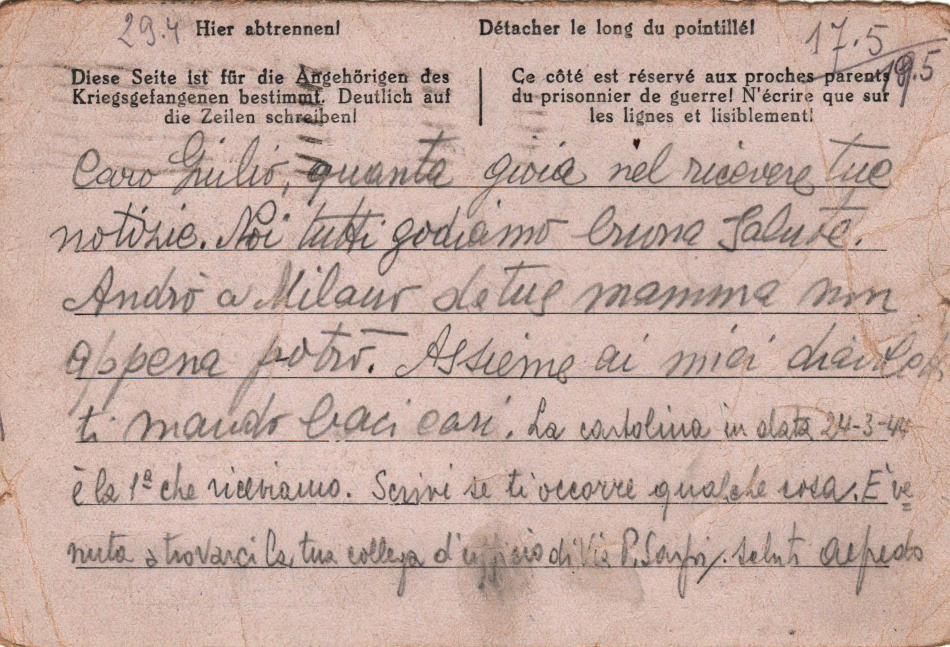 29.4 Hier abtrennen! Détacher le long du pointillé! 17.5
19.5
Diese Seite ist für die Angehörigen des
Kriegsgefangenen bestimmt. Deutlich auf
die Zeilen schreiben!
Ce côté est réservé aux proches parents
du prisonnier de guerre! N'écrire que sur
les lignes et lisiblement!
Caro Giulio, quanta gioia nel ricevere tue
notizie. Noi tutti godiamo buona salute.
Andrò a Milano da tua mamma non
appena potrò. Assieme ai miei
ti mando baci cari. La cartolina in data 24-3-44
è la 1ª che riceviamo. Scrivi se ti occorre qualche cosa. È ve=
nuta a trovarci la tua collega d'ufficio di Via P. Sarpi. Saluti Alfredo